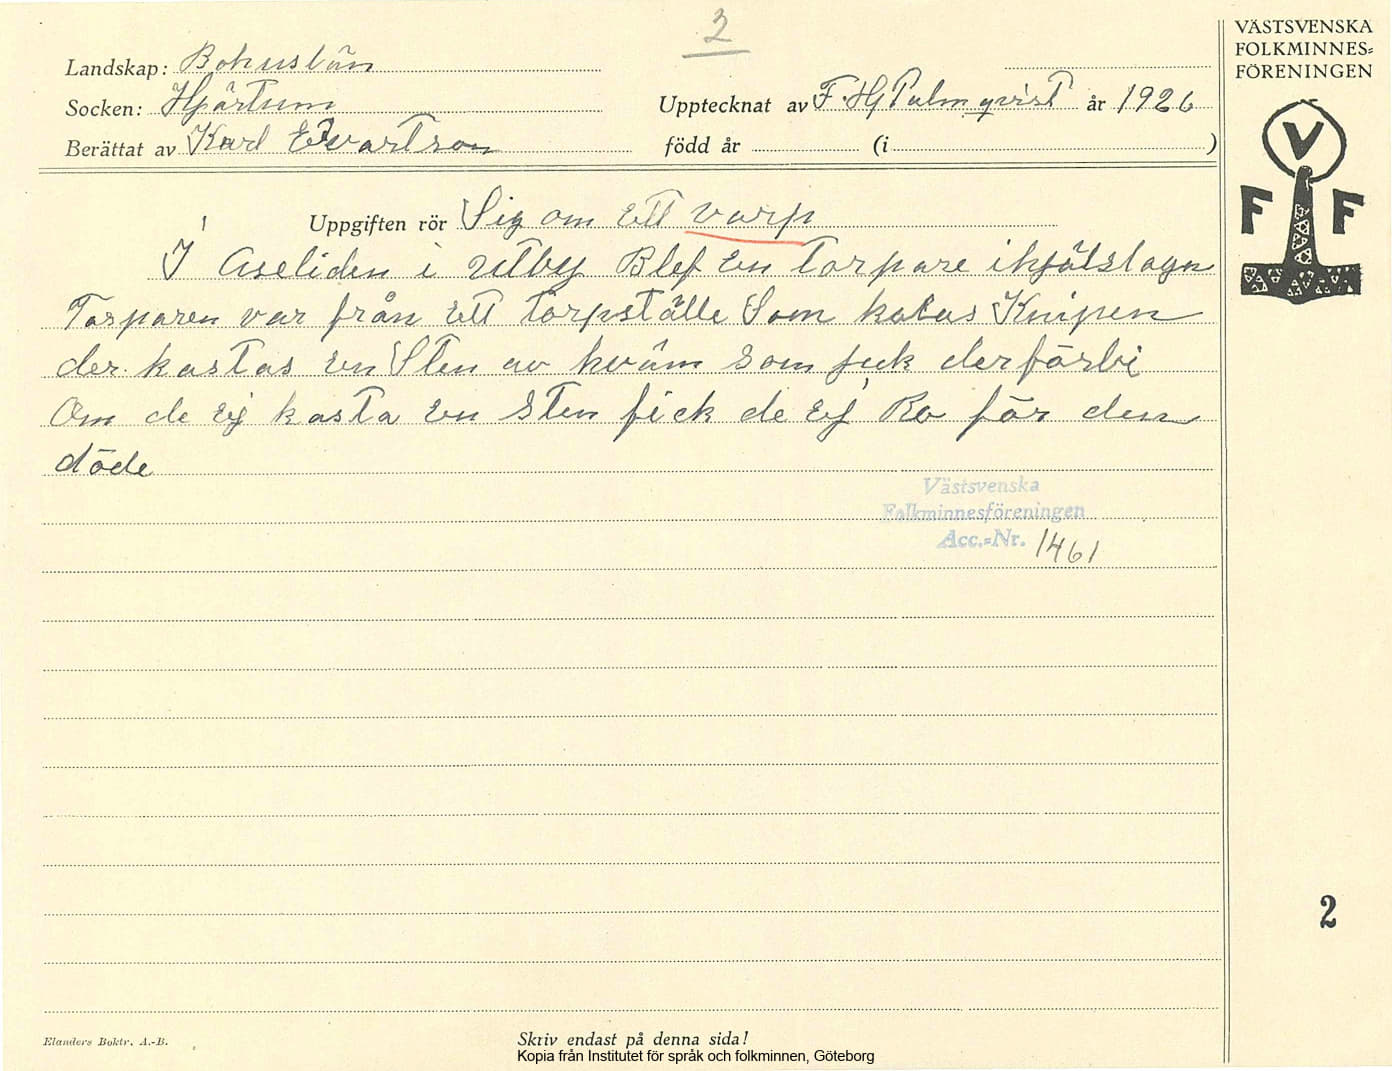 2
VÄSTSVENSKA
FOLKMINNES=
FÖRENINGEN
V
F F
Landskap: Bohuslän
Socken: Hjärtum
Upptecknat av F. Hj Palmqvist år 1926
Berättat av Karl Evartson
född år (i )
Uppgiften rör Sig om ett varp
I Aseliden i Utby Blef en torpare ihjälslagen
Torparen var från ett torpställe Som kalas Knipen
der kastas en Sten av hväm som jick derförbi
Om de ej kasta en Sten fick de ej Ro för den
döde
Västsvenska
Folkminnesföreningen
Acc.=Nr. 1461
2
Elanders Boktr. A.-B.
Skriv endast på denna sida!
Kopia från Institutet för språk och folkminnen, Göteborg